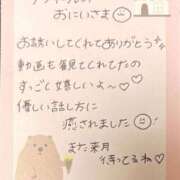 おにいさま
お話いしてくれてありがとう
動画も観てくれてたの
すっごく嬉しいよ〜♡
優しい話し方に
癒されました
また来月
待ってるね♡